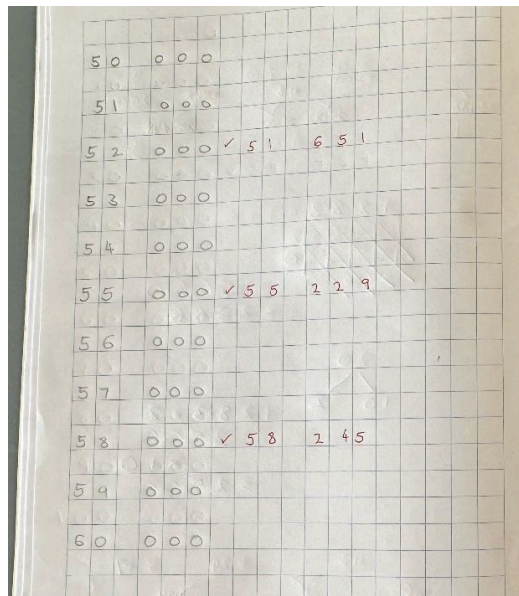 50 000
51 000
52 000 ✓ 51 651
53 000
54 000
55 000 ✓ 55 229
56 000
57 000
58 000 ✓ 58 245
59 000
60 000